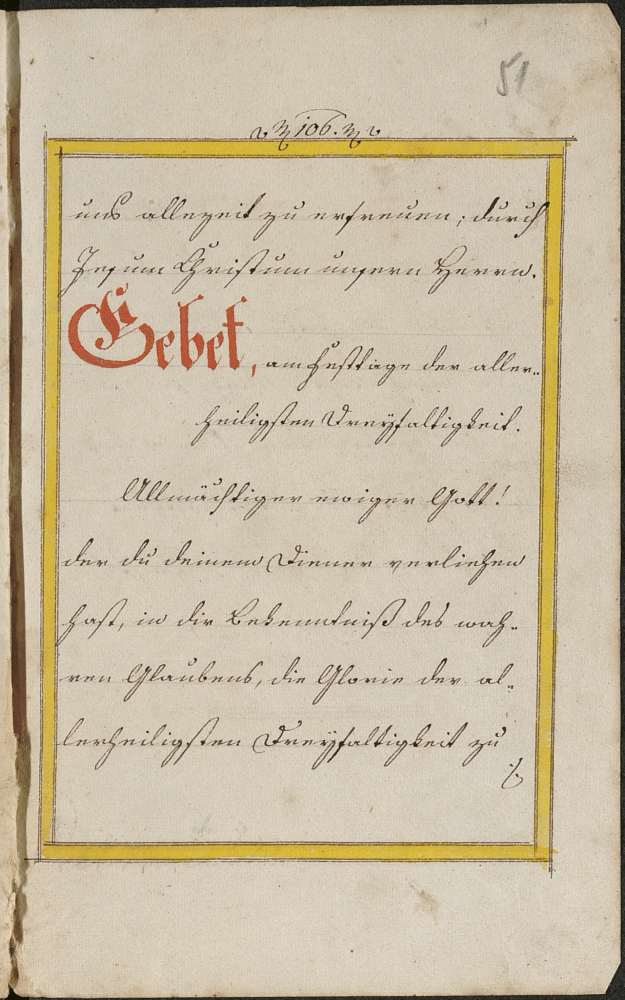 51
106.
uns allezeit zu erfreuen; durch
Jesum Christum unsern Herrn.
Gebet, am Festtage der aller-
heiligsten Dreyfaltigkeit.
Allmächtiger ewiger Gott!
der du deinem Diener verliehen
hast, in die Bekenntniß des wah-
ren Glaubens, die Glorie der al-
lerheiligsten Dreyfaltigkeit zu